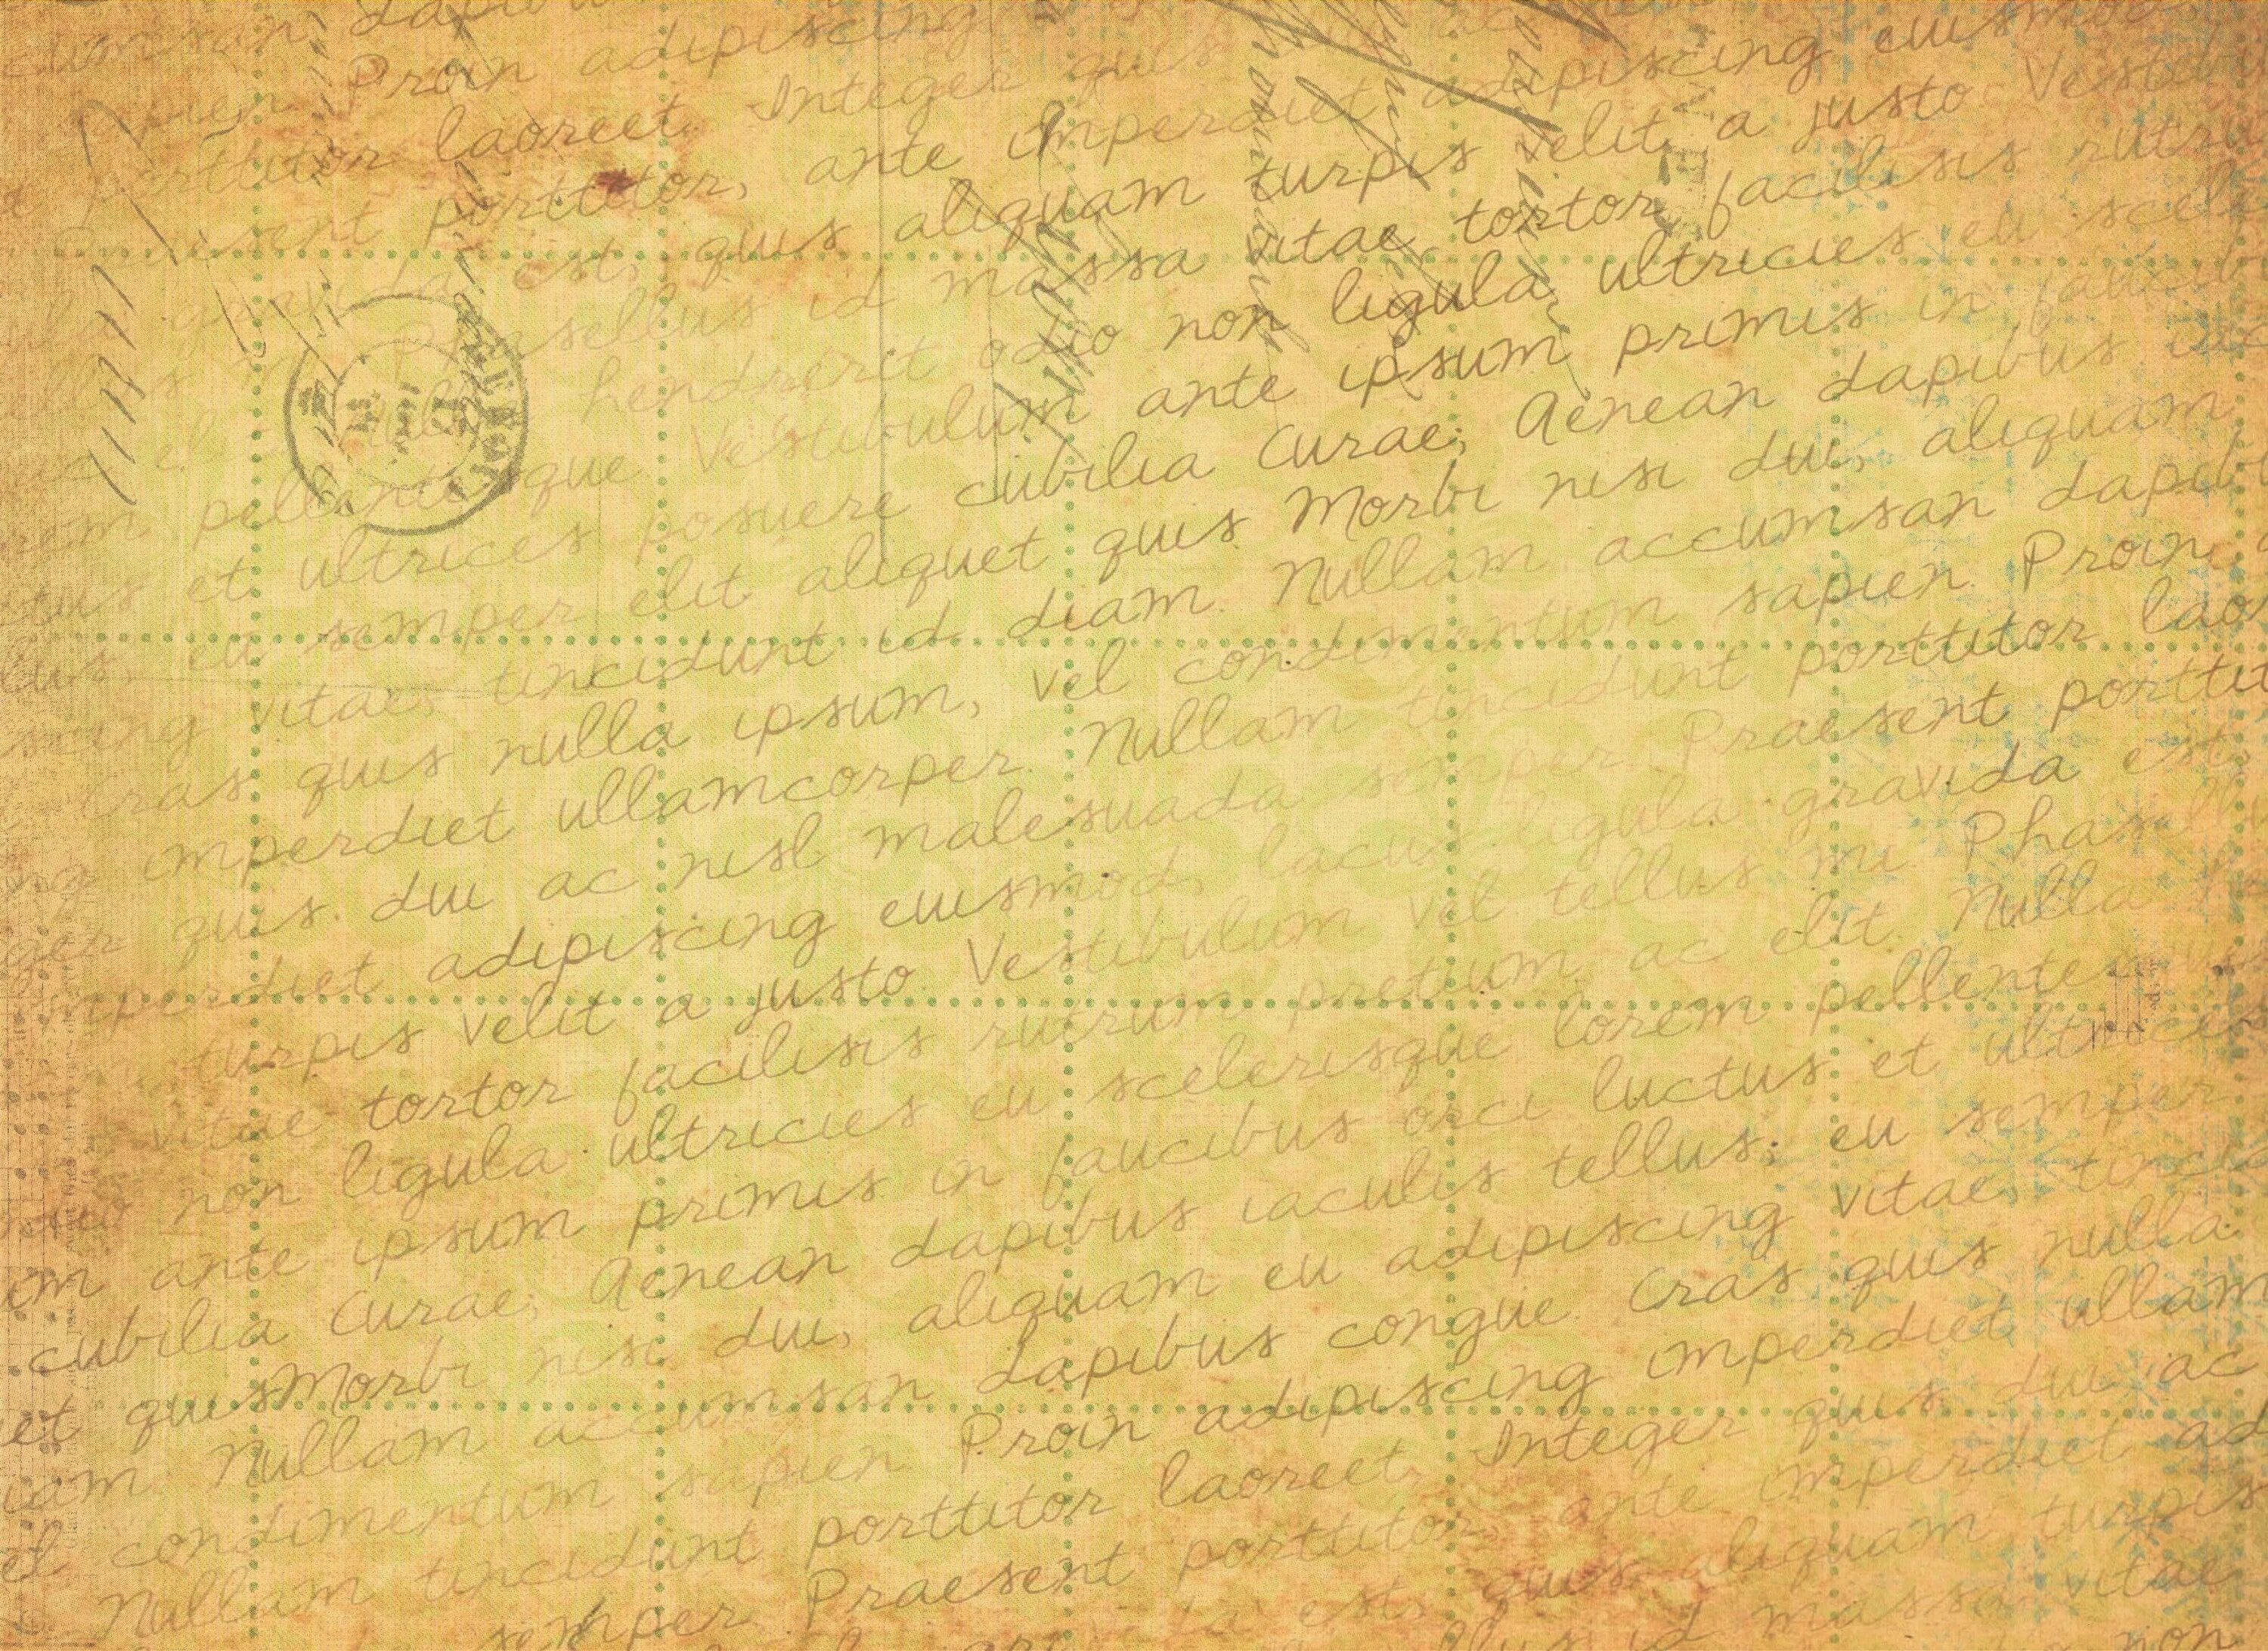 accumsan dapibus
sapien Proin adipiscing
porttitor laoreet. Integer quis
Praesent porttitor, ante imperdiet adipiscing euismod
gravida est, quis aliquam turpis velit a justo Vestibu
mi Phasellus id massa vitae tortor facilisis rutru
el hendrerit odio non ligula ultricies eu scele
rem pellentesque Vestibulum ante ipsum primis in faucib
tus et ultrices posuere cubilia Curae; Aenean dapibus iac
llus, eu semper elit aliquet quis Morbi nisi dui, aliquam
scing vitae, tincidunt id diam. Nullam accumsan dapib
Cras quis nulla ipsum, vel condimentum sapien Proin
ng imperdiet ullamcorper. Nullam tincidunt porttitor lao
ger quis dui ac nisl malesuada semper Praesent porttit
imperdiet adipiscing euismod, lacus ligula gravida est,
turpis velit a justo Vestibulum vel tellus mi Phasell
vitae tortor facilisis rutrum pretium ac elit. Nulla
odio non ligula ultricies eu scelerisque lorem pellentesque
um ante ipsum primis in faucibus orci luctus et ultrices
cubilia Curae; Aenean dapibus iaculis tellus, eu semper
et quis Morbi nisi dui, aliquam eu adipiscing vitae, tincid
iam Nullam accumsan dapibus congue. Cras quis nulla
el condimentum sapien Proin adipiscing imperdiet ullam
Nullam tincidunt porttitor laoreet. Integer quis dui ac
semper Praesent porttitor, ante imperdiet ad
est, quis aliquam turpis
id massa vitae
non